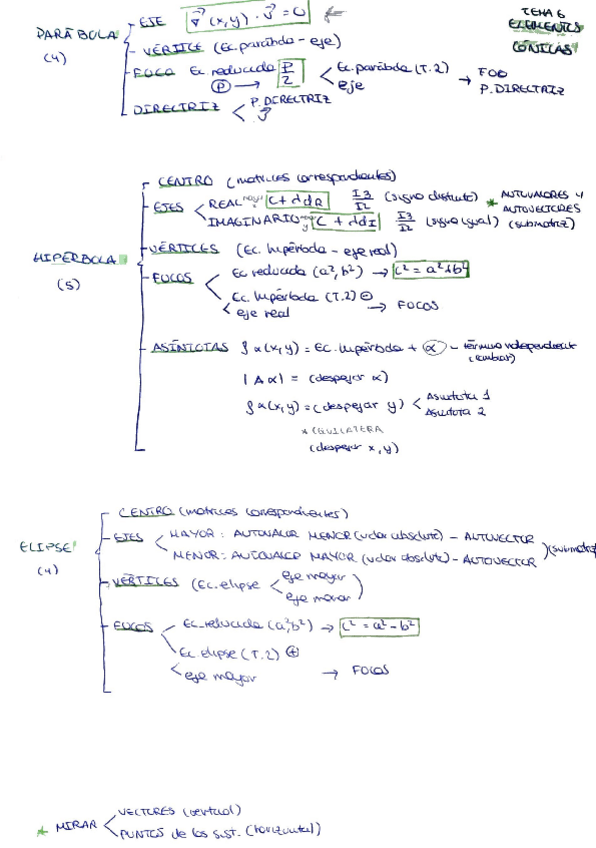 TEMA 6
ELEMENTOS
CÓNICAS
PARÁBOLA
(4)
EJE ∇⃗(x,y) · v⃗ = 0 ←
VÉRTICE (Ec. parábola - eje)
FOCO Ec. reducida P/2 < Ec. parábola (T.2) → FOCO
(P) → eje P. DIRECTRIZ
DIRECTRIZ < P. DIRECTRIZ
HIPÉRBOLA
(5)
CENTRO (matrices correspondientes)
EJES < REAL C + λdR I3/I2 (signo distinto) * AUTOVALORES Y
AUTOVECTORES
IMAGINARIO C + λdI I3/I2 (signo igual) (submatriz)
VÉRTICES (Ec. hipérbola - eje real)
FOCOS < Ec reducida (a², b²) → c² = a² + b²
Ec. hipérbola (T.2) ⊖
eje real → FOCOS
ASÍNTOTAS f α(x,y) = Ec. hipérbola + α - término independiente
(cambiar)
|A α| = (despejar α)
f α(x,y) = (despejar y) < Asíntota 1
Asíntota 2
* EQUILÁTERA
(despejar x, y)
ELIPSE
(4)
CENTRO (matrices correspondientes)
EJES < MAYOR: AUTOVALOR MENOR (valor absoluto) - AUTOVECTOR
MENOR: AUTOVALOR MAYOR (valor absoluto) - AUTOVECTOR (submatriz
VÉRTICES (Ec. elipse < eje mayor
eje menor )
FOCOS < Ec. reducida (a², b²) → c² = a² - b²
Ec. elipse (T.2) ⊕
eje mayor → FOCOS
* MIRAR < VECTORES (vertical)
PUNTOS de los sist. (horizontal)